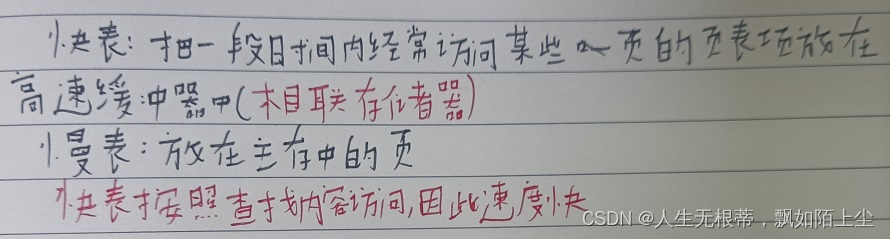 快表：把一段时间内经常访问某些页的页表项放在
高速缓冲器中(相联存储器)
慢表：放在主存中的页
快表按照查找内容访问,因此速度快
CSDN @人生无根蒂，飘如陌上尘